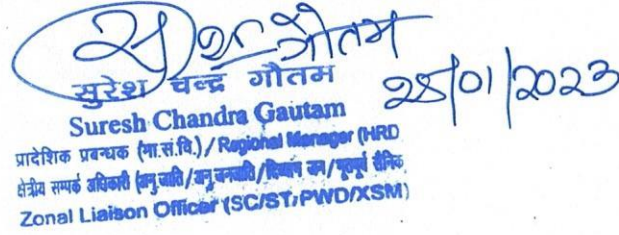 सुरेश चन्द्र गौतम
28/01/2023
Suresh Chandra Gautam
प्रादेशिक प्रबन्धक (मा.सं.वि.) / Regional Manager (HRD
क्षेत्रीय सम्पर्क अधिकारी (अनु.जाति/अनु.जनजाति/दिव्यांग जन/भूतपूर्व सैनिक
Zonal Liaison Officer (SC/ST,PWD/XSM)